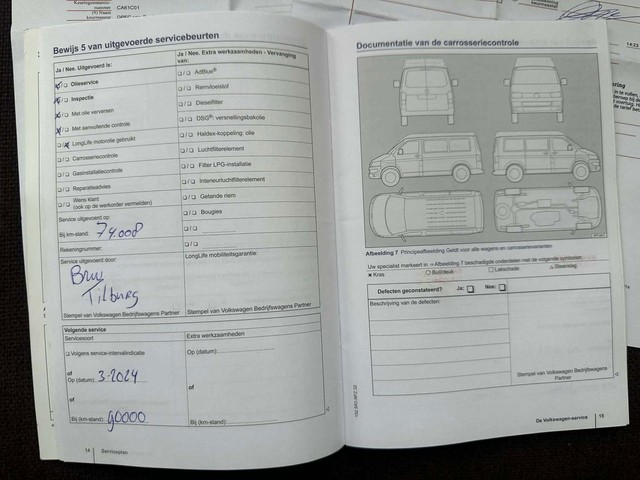 CA61C01
14:23
Bewijs 5 van uitgevoerde servicebeurten
Ja / Nee. Uitgevoerd is:
Olieservice
Inspectie
Met olie verversen
Met aanvullende controle
LongLife-motorolie gebruikt
Carrosseriecontrole
Gasinstallatiecontrole
Reparatieadvies
Wens klant
(ook op de werkorder vermelden)
Service uitgevoerd op:
Bij km-stand: 74.008
Rekeningnummer:
Service uitgevoerd door:
Tilburg
Stempel van Volkswagen Bedrijfswagens Partner
Ja / Nee. Extra werkzaamheden - Vervanging
van:
AdBlue®
Remvloeistof
Dieselfilter
DSG®-versnellingsbakolie
Haldex-koppeling: olie
Luchtfilterelement
Filter LPG-installatie
Interieurluchtfilterelement
Getande riem
Bougies
LongLife mobiliteitsgarantie:
Stempel van Volkswagen Bedrijfswagens Partner
Volgende service
Servicesoort
Volgens service-intervalindicatie
of
Op (datum): 3-2024
of
Bij (km-stand): 90000
Extra werkzaamheden
Op (datum):
of
Bij (km-stand):
14 Serviceplan
Documentatie van de carrosseriecontrole
Afbeelding 7 Principeafbeelding: Geldt voor alle wagens en carrosserievarianten
Uw specialist markeert in ⇒ Afbeelding 7 beschadigde onderdelen met de volgende symbolen:
× Kras ○ Buil/deuk □ Lakschade △ Steenslag
Defecten geconstateerd? Ja: Nee:
Beschrijving van de defecten:
Stempel van Volkswagen Bedrijfswagens
Partner
De Volkswagen-service 15